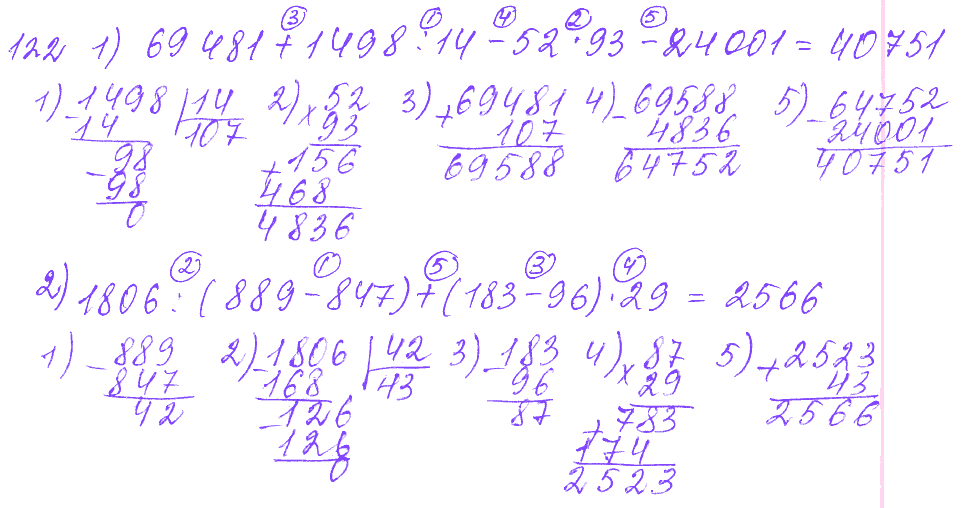 ③ ① ④ ② ⑤
122 1) 69481 + 1498 : 14 - 52 · 93 - 24001 = 40751
1) - 1498 | 14 2) × 52 3) + 69481 4) - 69588 5) - 64752
14 107 93 107 4836 24001
- 98 + 156 69588 64752 40751
98 468
0 4836
② ① ⑤ ③ ④
2) 1806 : (889 - 847) + (183 - 96) · 29 = 2566
1) - 889 2) - 1806 | 42 3) - 183 4) × 87 5) + 2523
847 168 43 96 29 43
42 - 126 87 + 783 2566
126 174
0 2523